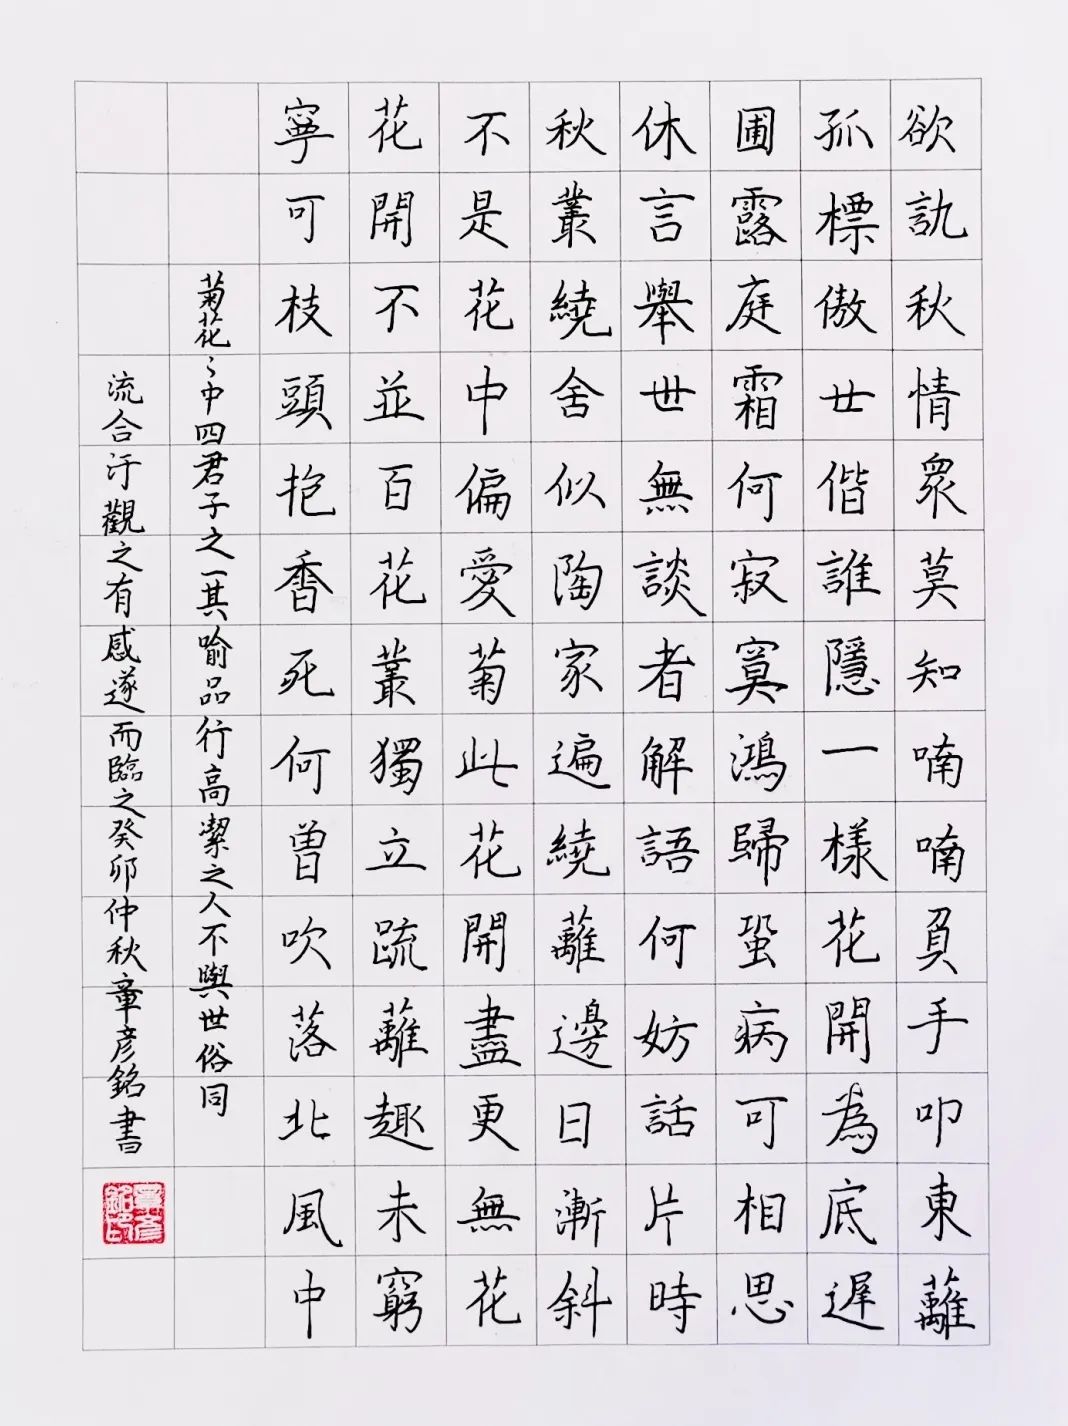 欲訊秋情衆莫知喃喃負手叩東蘺
孤標傲世偕誰隱一樣花開為底遲
圃露庭霜何寂寞鴻歸蛩病可相思
休言舉世無談者解語何妨話片時
秋叢繞舍似陶家遍繞蘺邊日漸斜
不是花中偏愛菊此花開盡更無花
花開不並百花叢獨立疏蘺趣未窮
寧可枝頭抱香死何曾吹落北風中
菊花〻中四君子之一其喻品行高潔之人不與世俗同
流合汙觀之有感遂而臨之癸卯仲秋章彥銘書
章彥銘印